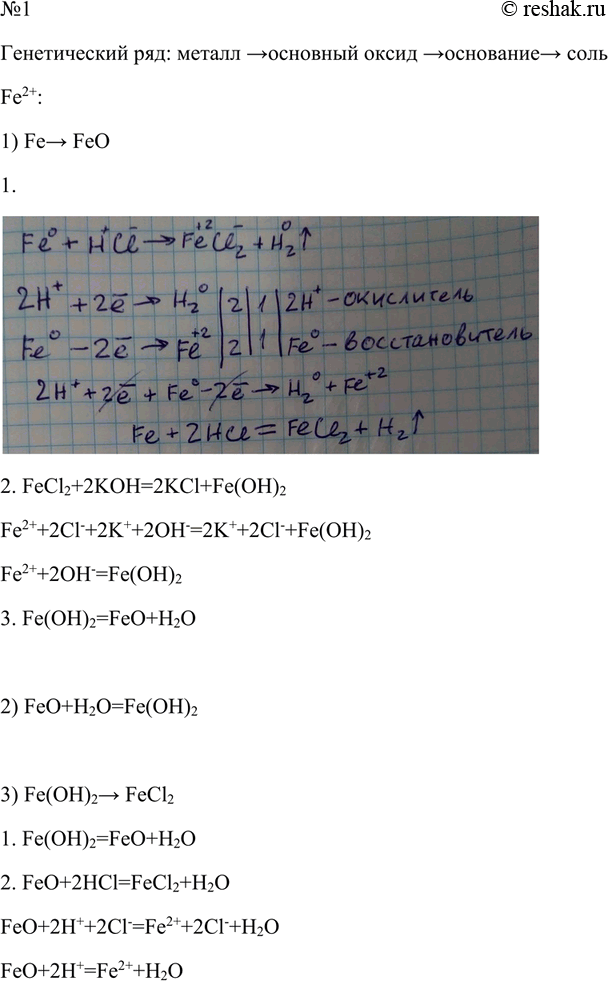 №1 © reshak.ru
Генетический ряд: металл →основный оксид →основание→ соль
Fe²⁺:
1) Fe→ FeO
1.
Fe⁰ + H⁺Cl⁻ → Fe⁺²Cl₂⁻ + H₂⁰↑
2H⁺ + 2ē → H₂⁰ |2|1| 2H⁺ - окислитель
Fe⁰ - 2ē → Fe⁺² |2|1| Fe⁰ - восстановитель
2H⁺ + 2ē + Fe⁰ - 2ē → H₂⁰ + Fe⁺²
Fe + 2HCl = FeCl₂ + H₂↑
2. FeCl₂+2KOH=2KCl+Fe(OH)₂
Fe²⁺+2Cl⁻+2K⁺+2OH⁻=2K⁺+2Cl⁻+Fe(OH)₂
Fe²⁺+2OH⁻=Fe(OH)₂
3. Fe(OH)₂=FeO+H₂O
2) FeO+H₂O=Fe(OH)₂
3) Fe(OH)₂→ FeCl₂
1. Fe(OH)₂=FeO+H₂O
2. FeO+2HCl=FeCl₂+H₂O
FeO+2H⁺+2Cl⁻=Fe²⁺+2Cl⁻+H₂O
FeO+2H⁺=Fe²⁺+H₂O